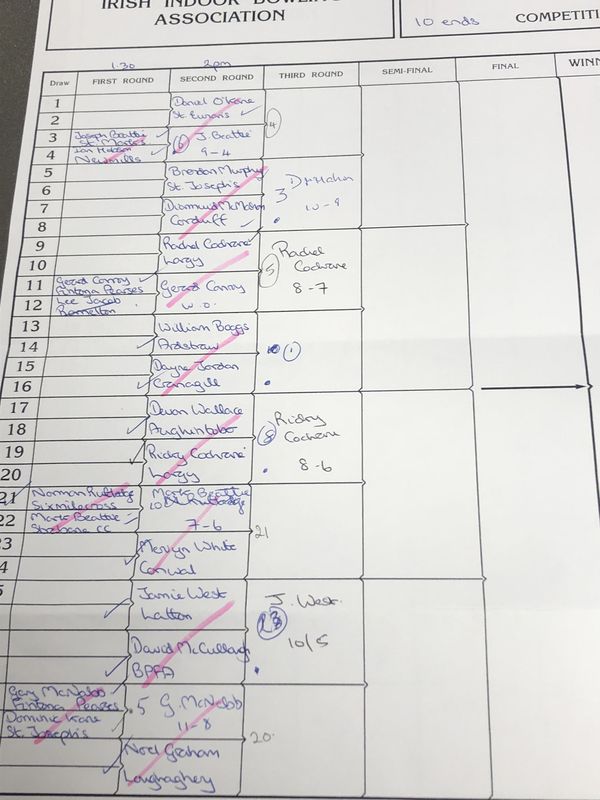 IRISH INDOOR BOWLING
ASSOCIATION
10 ends
COMPETITI
1.30
2pm
Draw
FIRST ROUND
SECOND ROUND
THIRD ROUND
SEMI-FINAL
FINAL
WINN
1
Daniel O'Kane
2
St.
4
3
Joseph Beattie
St. Mark's
6
J Beattie
4
Ian
Newmills
9-4
5
Brendan Murphy
6
St. Joseph's
3
7
Diarmuid McMahon
10-9
8
Corduff
9
Rachel Cochrane
10
Largy
5
Rachel
Cochrane
8-7
11
Gerard Conroy
Fintona Pearses
Gerard Conroy
12
Lee Jacob
Ramelton
W.O.
13
William Boggs
14
Ardstraw
1
15
Dayne Jordan
16
Cranagill
17
Devon Wallace
18
Aughintober
8
Ricky
Cochrane
8-6
19
Ricky Cochrane
20
Largy
21
Norman Rutledge
Sixmilecross
Mark Beattie
10
22
Mark Beattie
Strabane CC
7-6
21
23
Mervyn White
4
Conwal
5
Jamie West
Latton
J. West
23
10/5
David McCullagh
BPFA
Gary McNabb
Fintona Pearses
5
G. McNabb
Dominic Kane
St. Joseph's
11-8
20
Noel Graham
Loughaghery